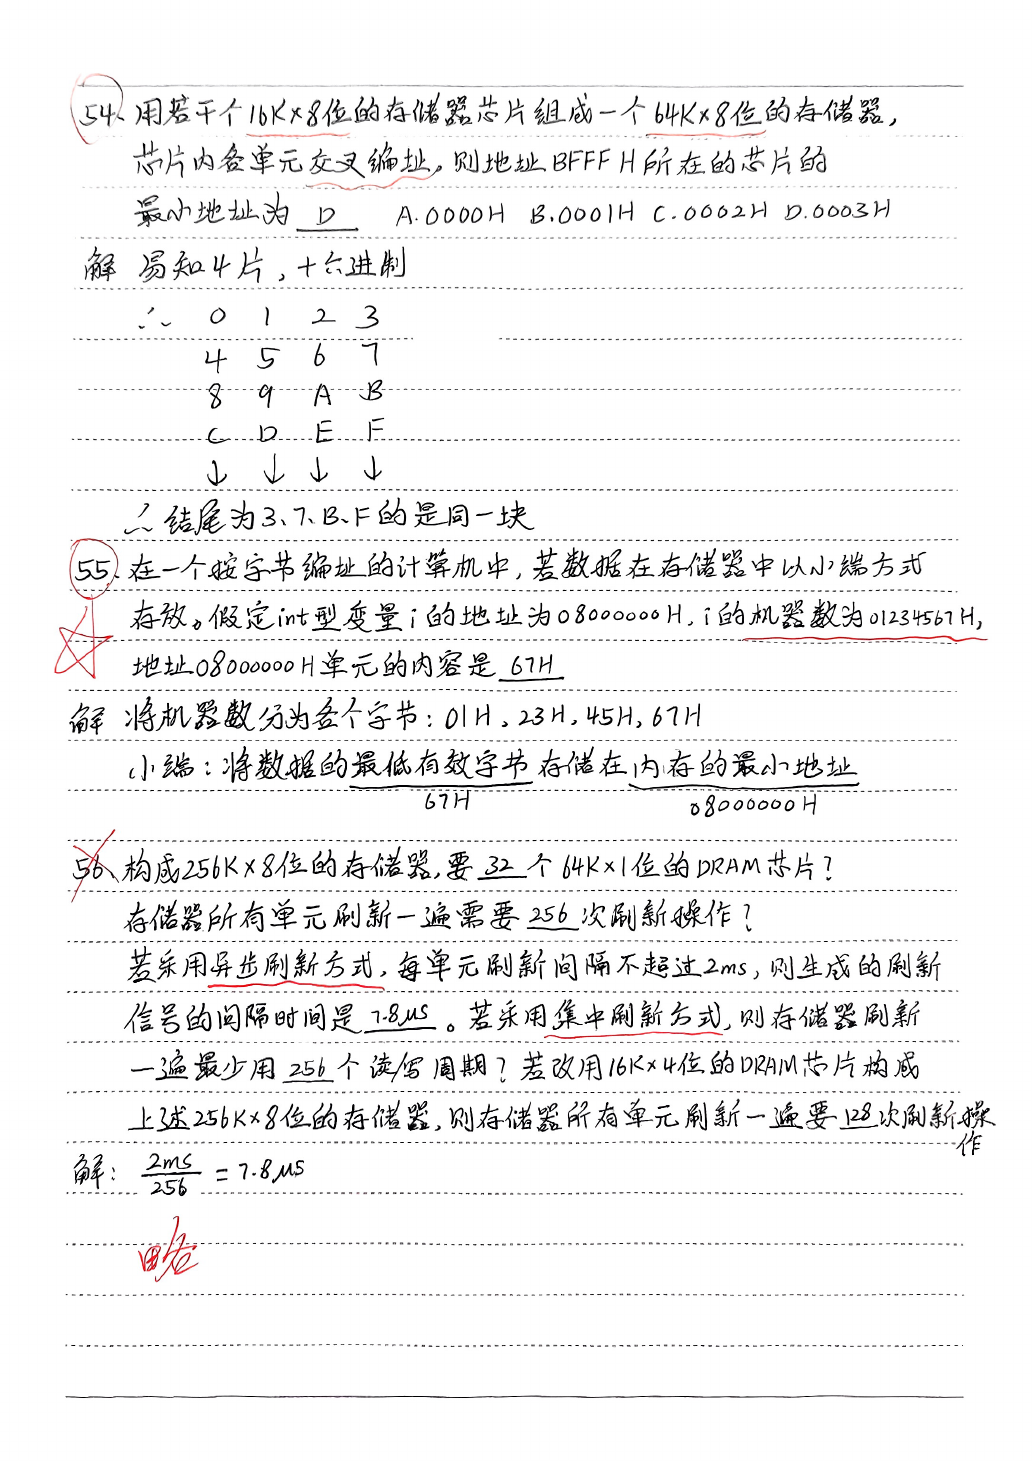 54、用若干个16K×8位的存储器芯片组成一个64K×8位的存储器,
芯片内各单元交叉编址,则地址BFFFH所在的芯片的
最小地址为 D A.0000H B.0001H C.0002H D.0003H
解 易知4片,十六进制
∴ 0 1 2 3
4 5 6 7
8 9 A B
C D E F
↓ ↓ ↓ ↓
∴结尾为3、7、B、F的是同一块
55、在一个按字节编址的计算机中,若数据在存储器中以小端方式
存放。假定int型变量i的地址为08000000H,i的机器数为01234567H,
地址08000000H单元的内容是 67H
解 将机器数分为各个字节:01H、23H,45H,67H
小端:将数据的最低有效字节存储在内存的最小地址
67H 08000000H
56、构成256K×8位的存储器,要 32 个64K×1位的DRAM芯片?
存储器所有单元刷新一遍需要 256 次刷新操作?
若采用异步刷新方式,每单元刷新间隔不超过2ms,则生成的刷新
信号的间隔时间是 7.8μs 。若采用集中刷新方式,则存储器刷新
一遍最少用 256 个读/写周期?若改用16K×4位的DRAM芯片构成
上述256K×8位的存储器,则存储器所有单元刷新一遍要 128 次刷新操
作
解: 2ms/256 = 7.8μs
略